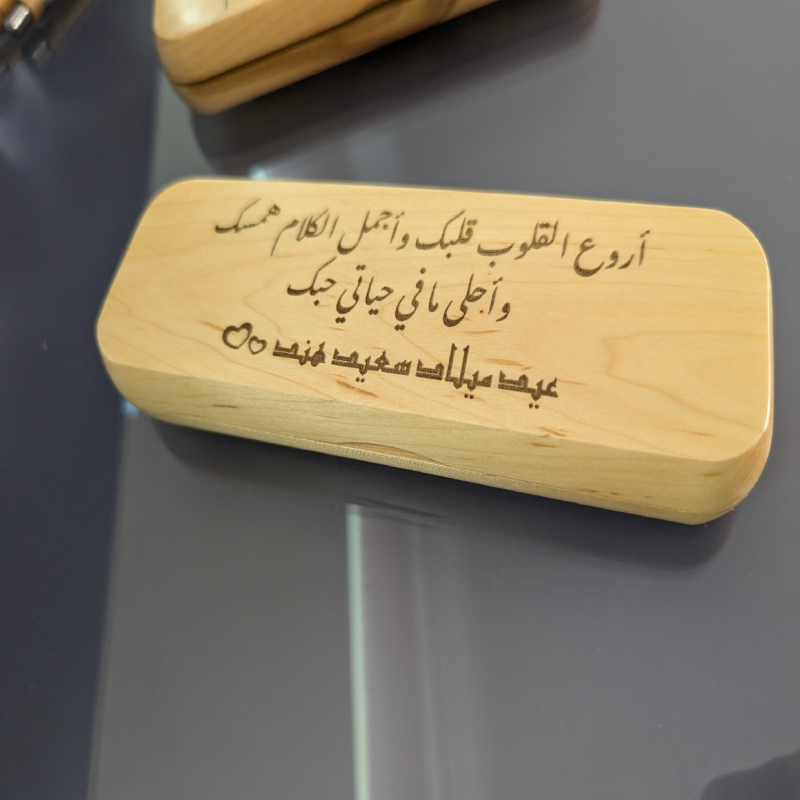 أروع القلوب قلبك وأجمل الكلام همسك
وأحلى مافي حياتي حبك
عيد ميلاد سعيد هند